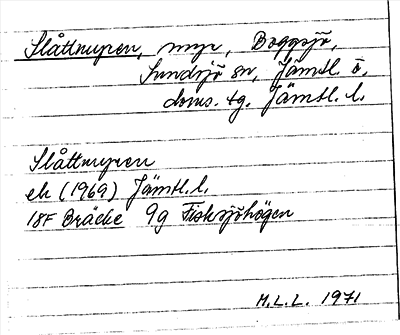 Slåttmyren, myr, Boggsjö,
Sundsjö sn, Jämtl. ö.
doms. tg. Jämtl. l.
Slåttmyren
ek (1969) Jämtl. l.
18F Bräcke 9g Fisksjöhögen
M.L.L. 1971